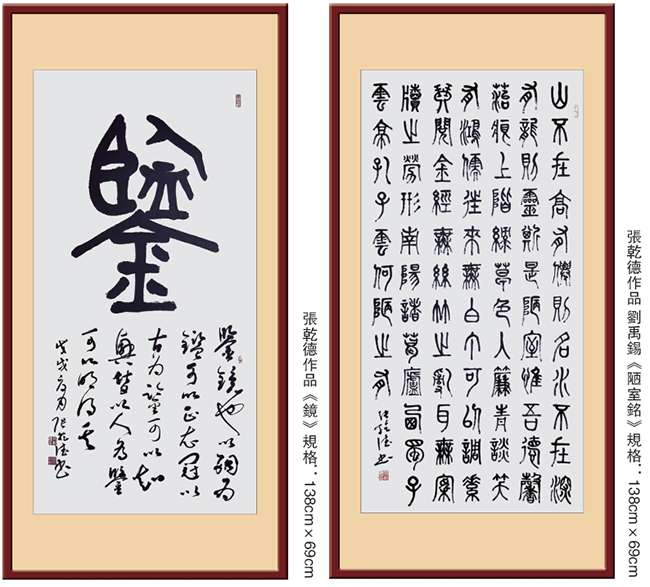 鑒
鑒鏡也以銅為
鑑可以正衣冠以
古為鑒可以知
興替以人為鑒
可以明得失
戊戌 張乾德書
張乾德作品《鏡》規格：138cm×69cm
山不在高有僊則名水不在深
有龍則靈斯是陋室惟吾德馨
苔痕上階綠草色入簾青談笑
有鴻儒往來無白丁可以調素
琴閱金經無絲竹之亂耳無案
牘之勞形南陽諸葛廬西蜀子
雲亭孔子雲何陋之有
張乾德書
張乾德作品 劉禹錫《陋室銘》規格：138cm×69cm